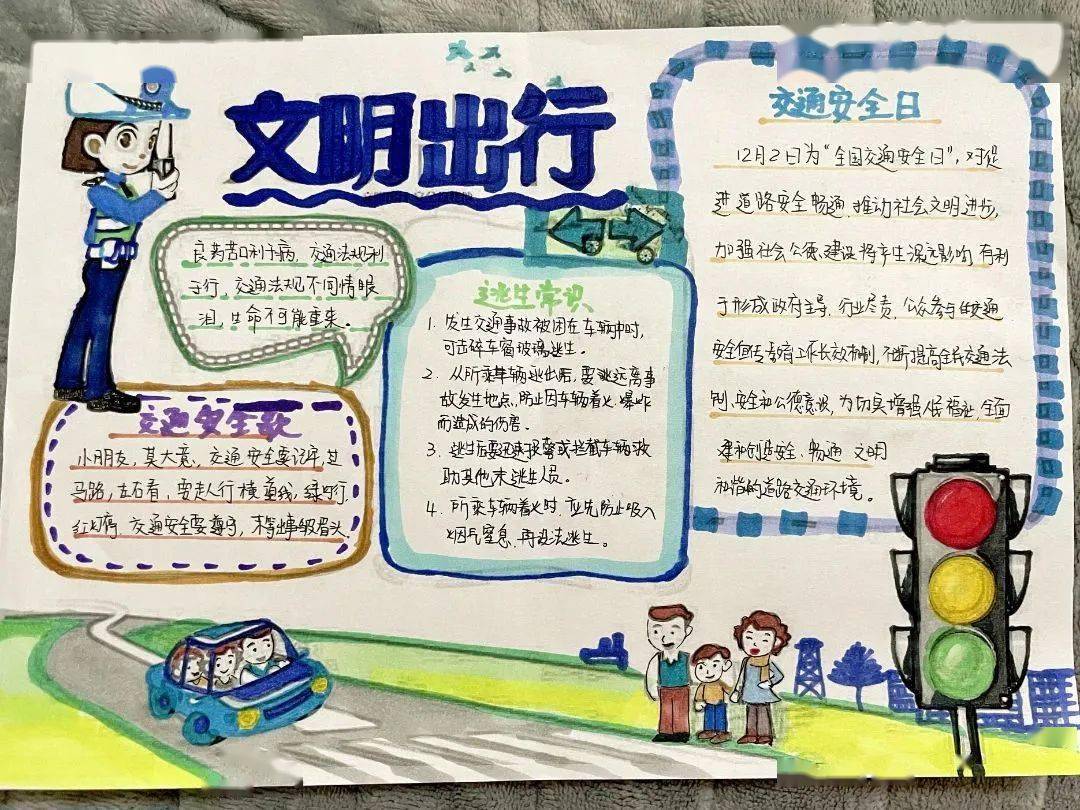 文明出行
良药苦口利于病，交通法规利
于行，交通法规不同情眼
泪，生命不可能重来。
交通安全歌
小朋友，莫大意，交通安全要记牢，过
马路，左右看，要走人行横道线，绿灯行，
红灯停，交通安全要遵守，
逃生常识
1. 发生交通事故被困在车辆中时，
可击碎车窗玻璃逃生。
2. 从所乘车辆逃出后，要逃远离事
故发生地点，防止因车辆着火、爆炸
而造成的伤害。
3. 逃生后要迅速报警或拦截车辆救
助其他未逃生人员。
4. 所乘车辆着火时，应先防止吸入
烟气窒息，再设法逃生。
交通安全日
12月2日为“全国交通安全日”，对促
进道路安全畅通、推动社会文明进步，
加强社会公德、建设将产生深远影响，有利
于形成政府主导、行业尽责、公众参与的交通
安全宣传教育工作长效机制，不断提高全民交通法
制、安全和公德意识，为切实增强人民福祉，全面
建和创造安全、畅通 文明
和谐的道路交通环境。